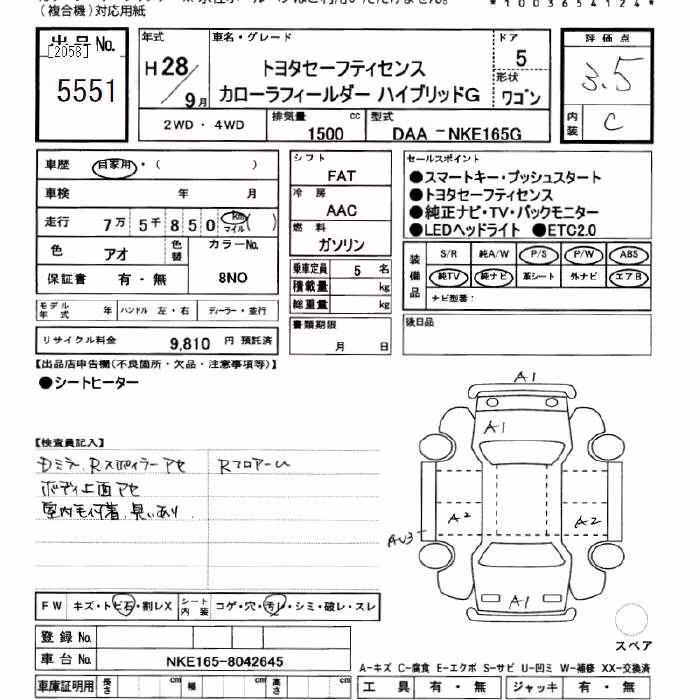 (複合機)対応用紙
*1003654124*
出品No.
[2058]
5551
年式
H28/9月
車名・グレード
トヨタセーフティセンス
カローラフィールダー ハイブリッドG
ドア
5
形状
ワゴン
2WD・4WD
排気量
1500 cc
型式
DAA-NKE165G
評価点
3.5
内装
C
車歴 自家用・( )
車検 年 月
走行 7万5千850 Km マイル ( )
色 アオ
色替
カラーNo.
8NO
保証書 有・無
モデル年式 年
ハンドル 左・右
ディーラー・並行
リサイクル料金 9,810 円 預託済
シフト
FAT
冷房
AAC
燃料
ガソリン
乗車定員 5 名
積載量 kg
総重量 kg
書類期限
月 日
セールスポイント
●スマートキー・プッシュスタート
●トヨタセーフティセンス
●純正ナビ・TV・バックモニター
●LEDヘッドライト ●ETC2.0
装備品
S/R 純A/W P/S P/W ABS
純TV 純ナビ 革シート 外ナビ エアB
ナビ型番:
後日品
【出品店申告欄(不良箇所・欠品・注意事項等)】
●シートヒーター
【検査員記入】
Dミラ、Rスポイラーアセ
RフロアーU
ボディ上面アセ
室内毛付着、臭いあり
A1
A1
A2
A2
AU3
A1
スペア
FW キズ・トビ石・割レX
シート内装 コゲ・穴・汚レ・シミ・破レ・スレ
登録No.
車台No. NKE165-8042645
車庫証明用 長さ cm 幅 cm 高さ cm
A-キズ C-腐食 E-エクボ S-サビ U-凹ミ W-補修 XX-交換済
工具 有・無 ジャッキ 有・無